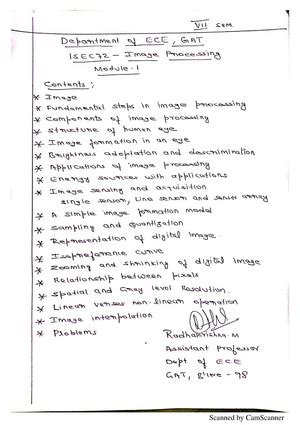 VII SEM
Department of ECE, GAT
15EC72 - Image Processing
Module-1
Contents:
* Image
* Fundamental steps in image processing
* Components of image processing
* Structure of human eye
* Image formation in an eye
* Brightness adaption and descrimination
* Applications of image processing
* Energy sources with applications
* Image sensing and acquisition
single sensor, Line sensor and sensor array
* A simple image formation model
* Sampling and quantization
* Representation of digital image
* Isopreference curve
* Zooming and shrinking of digital image
* Relationship between pixels
* Spatial and Gray level Resolution.
* Linear verses non-linear operation
* Image interpolation
* Problems
Radhakrishna. M
Assistant professor
Dept of ECE
GAT, B'lore - 98
Scanned by CamScanner